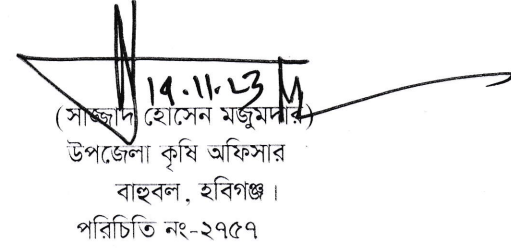 19.11.23
(সাজ্জাদ হোসেন মজুমদার)
উপজেলা কৃষি অফিসার
বাহুবল, হবিগঞ্জ।
পরিচিতি নং-২৭৫৭